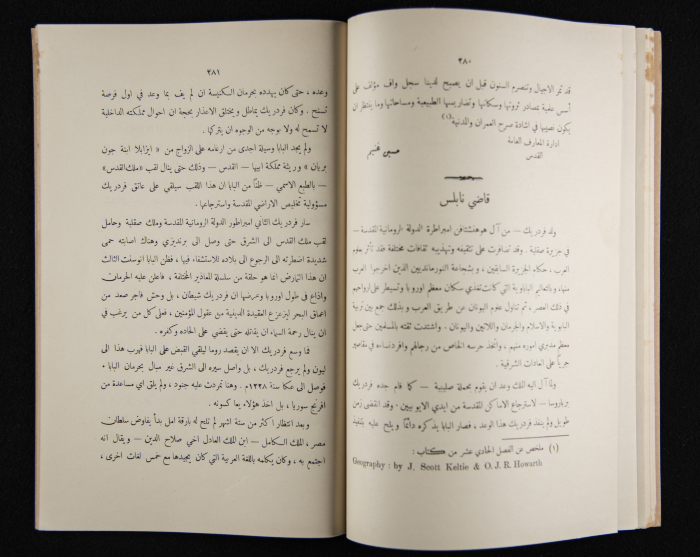 ٢٨٠
قد تمر الاجيال وتنصرم السنون قبل ان يصبح لدينا سجل واف مؤلف على
أسس علمية بمصادر ثروتها وسكانها وتضاريسها الطبيعية ومساحاتها وما ينتظر ان
يكون نصيبها في اشادة صرح العمران والمدنية(١)
ادارة المعارف العامة
القدس
حسين غنيم
قاضي نابلس
ولد فردريك — من آل هوهنشتافن امبراطرة الدولة الرومانية المقدسة —
في جزيرة صقلية. وقد تضافرت على تثقيفه وتهذيبه ثقافات مختلفة فقد تأثر بعلوم
العرب، حكام الجزيرة السابقين، وبشجاعة النورمانديين الذين اخرجوا العرب
منها، وبالتعاليم البابوية التي كانت تغذي سكان معظم اوروبا وتسيطر على ارواحهم
في ذلك العصر، ثم تناول علوم اليونان عن طريق العرب وبذلك جمع بين تربية
البابوية والاسلام والجرمان واللاتين واليونان. واشتدت ثقته بالمسلمين حتى جعل
معظم مديري اموره منهم، واتخذ حرسه الخاص من رجالهم وافرد نساءه في مقاصير
جرياً على العادات الشرقية.
ولما آل اليه الملك وعد ان يقوم بحملة صليبية — كما قام جده فردريك
بربروسا — لاسترجاع الاماكن المقدسة من ايدي الايوبيين. وقد انقضى زمن
طويل ولم ينفذ فردريك هذا الوعد، فصار البابا يذكره دائماً ويلح عليه بتنفيذ
(١) ملخص عن الفصل الحادي عشر من كتاب:
Geography : by J. Scott Keltie & O. J. R. Howarth
٢٨١
وعده، حتى كان يهدده بحرمان الكنيسة ان لم يف بما وعد في اول فرصة
تسنح. وكان فردريك يماطل ويختلق الاعذار بحجة ان احوال مملكته الداخلية
لا تسمح له ولا بوجه من الوجوه ان يتركها.
ولم يجد البابا وسيلة اجدى من ارغامه على الزواج من « ايزابلا ابنة جون
بريان » وريثة مملكة ابيها — القدس — وذلك حتى ينال لقب « ملك القدس »
— بالطبع الاسمي — ظناً من البابا ان هذا اللقب سيلقي على عاتق فردريك
مسؤولية تخليص الاراضي المقدسة واسترجاعها.
سار فردريك الثاني امبراطور الدولة الرومانية المقدسة وملك صقلية وحامل
لقب ملك القدس الى الشرق حتى وصل الى برنديزي وهناك اصابته حمى
شديدة اضطرته الى الرجوع الى بلاده للاستشفاء فيها، فظن البابا انوسنت الثالث
ان هذا التمارض انما هو حلقة من سلسلة المعاذير المختلفة، فاعلن عليه الحرمان
واذاع في طول اوروبا وعرضها ان فردريك شيطان، بل وحش فاجر صعد من
اعماق البحر ليزعزع العقيدة الدينية من عقول المؤمنين، فعلى كل من يرغب في
ان ينال رحمة السماء ان يقاتله حتى يقضي على الحاده وكفره.
فما وسع فردريك الا ان يقصد روما ليلقي القبض على البابا فهرب هذا الى
ليون ولم يرجع فردريك، بل واصل سيره الى الشرق غير مبال بحرمان البابا.
فوصل الى عكا سنة ١٢٢٨م. وهنا تمردت عليه جنود، ولم يلق اي مساعدة من
افرنج سوريا، بل اخذ هؤلاء يعاكسونه.
وبعد انتظار اكثر من ستة اشهر لم تلح له بارقة امل بدأ يفاوض سلطان
مصر، الملك الكامل — ابن الملك العادل اخي صلاح الدين — ويقال انه
اجتمع به، وكان يكلمه باللغة العربية التي كان يجيدها مع خمس لغات اخرى،